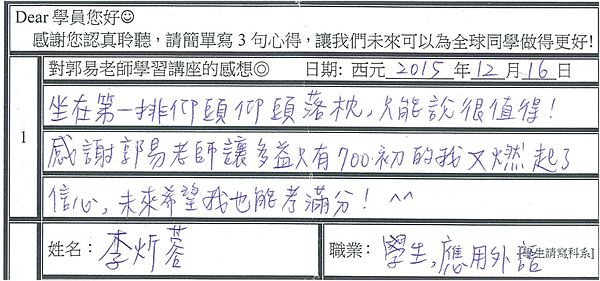 Dear 學員您好☺
感謝您認真聆聽，請簡單寫 3 句心得，讓我們未來可以為全球同學做得更好!
對郭易老師學習講座的感想◎ 日期: 西元 2015 年 12 月 16 日
1
坐在第一排仰頭仰頭落枕，只能說很值得！
感謝郭易老師讓多益只有700初的我又燃起了
信心，未來希望我也能考滿分！^^
姓名： 李炘蓉
職業： 學生，應用外語 [學生請寫科系]